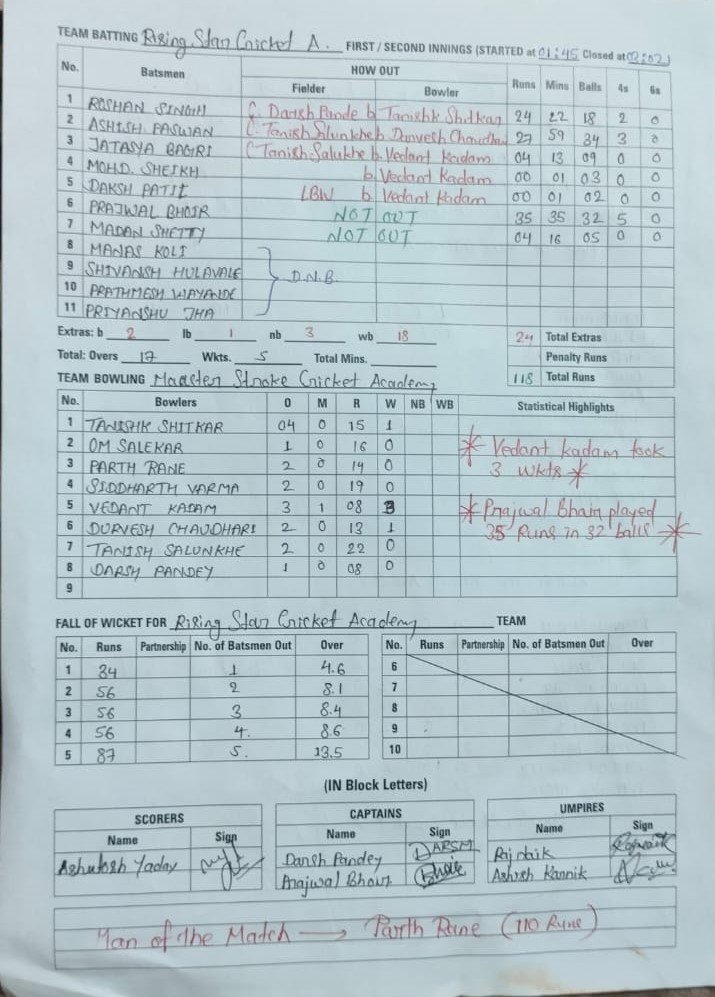 TEAM BATTING Rising Star Cricket A. FIRST / SECOND INNINGS (STARTED at 01:45 Closed at 02:02)
No. Batsmen HOW OUT Runs Mins Balls 4s 6s
Fielder Bowler
1 ROSHAN SINGH C. Darsh Pande b Tanishk Shitkar 24 22 18 2 0
2 ASHISH PASWAN C. Tanish Salunkhe b Durvesh Chaudhari 27 59 34 3 0
3 JATASYA BAGRI C Tanish Salukhe b. Vedant Kadam 04 13 09 0 0
4 MOHD. SHEIKH b. Vedant Kadam 00 01 03 0 0
5 DAKSH PATIL LBW b Vedant Kadam 00 01 02 0 0
6 PRAJWAL BHOIR NOT OUT 35 35 32 5 0
7 MADAN SHETTY NOT OUT 04 16 05 0 0
8 MANAS KOLI
9 SHIVANSH HULAVALE D.N.B.
10 PRATHMESH WAYANDE
11 PRIYANSHU JHA
Extras: b 2 lb 1 nb 3 wb 18 24 Total Extras
Total: Overs 17 Wkts. 5 Total Mins. Penalty Runs
118 Total Runs
TEAM BOWLING Master Stroke Cricket Academy
No. Bowlers O M R W NB WB Statistical Highlights
1 TANISHK SHITKAR 04 0 15 1
2 OM SALEKAR 1 0 16 0 * Vedant kadam took
3 PARTH RANE 2 0 14 0 3 wkts *
4 SIDDHARTH VARMA 2 0 19 0
5 VEDANT KADAM 3 1 08 3 * Prajwal Bhoir played
6 DURVESH CHAUDHARI 2 0 13 1 35 Runs in 32 balls *
7 TANISH SALUNKHE 2 0 22 0
8 DARSH PANDEY 1 0 08 0
9
FALL OF WICKET FOR Rising Star Cricket Academy TEAM
No. Runs Partnership No. of Batsmen Out Over No. Runs Partnership No. of Batsmen Out Over
1 34 1 4.6 6
2 56 2 8.1 7
3 56 3 8.4 8
4 56 4. 8.6 9
5 87 5. 13.5 10
(IN Block Letters)
SCORERS CAPTAINS UMPIRES
Name Sign Name Sign Name Sign
Ashutosh Yadav Darsh Pandey DARSH Raj naik
Prajwal Bhoir Bhoir Ashish Karnik
Man of the Match → Parth Rane (110 Runs)